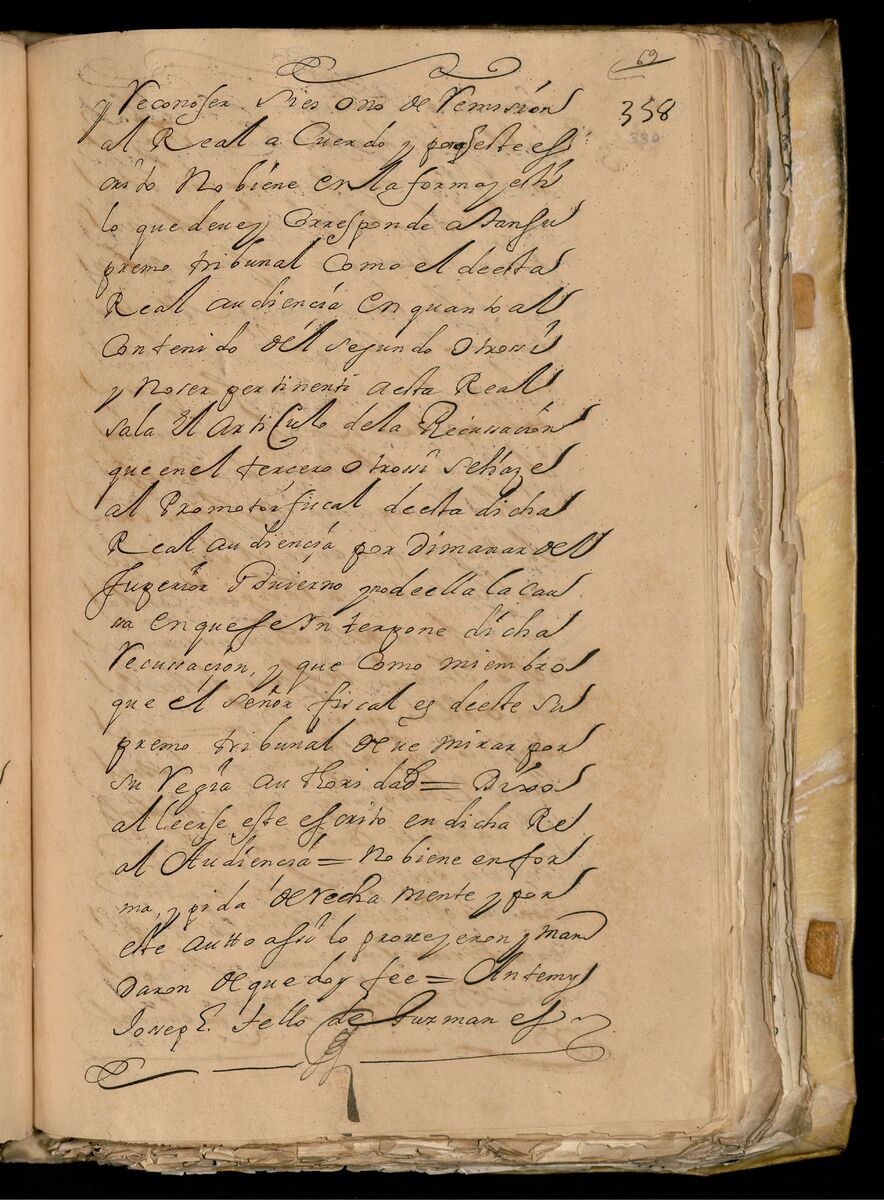 69
358
330
y Reconoser sies ono de Remision
al Real a Cuerdo y porq este es
crito No biene en la forma y esti
lo que deve y Corresponde a tan su
premo tribunal Como el de esta
Real audiencia en quanto al
Contenido del segundo otrossi
y No ser pertinente a esta Real
sala El articulo de la Recussacion
que en el tercero otrossi se haze
al Promotor fiscal de esta dicha
Real audiencia por dimanar del
superior Govierno y no de ella la cau
sa en que se Interpone dicha
Recussacion, y que Como miembro
que el señor fiscal es de este su
premo tribunal deve mirar por
su Regia authoridad = Dixo
al leerse este escrito en dicha Re
al Audiencia = No biene en for
ma, y pida derecha mente y por
este autto assi lo proveyeron y man
daron de que doy fee = Antemy
Joseph tello de Guzman es